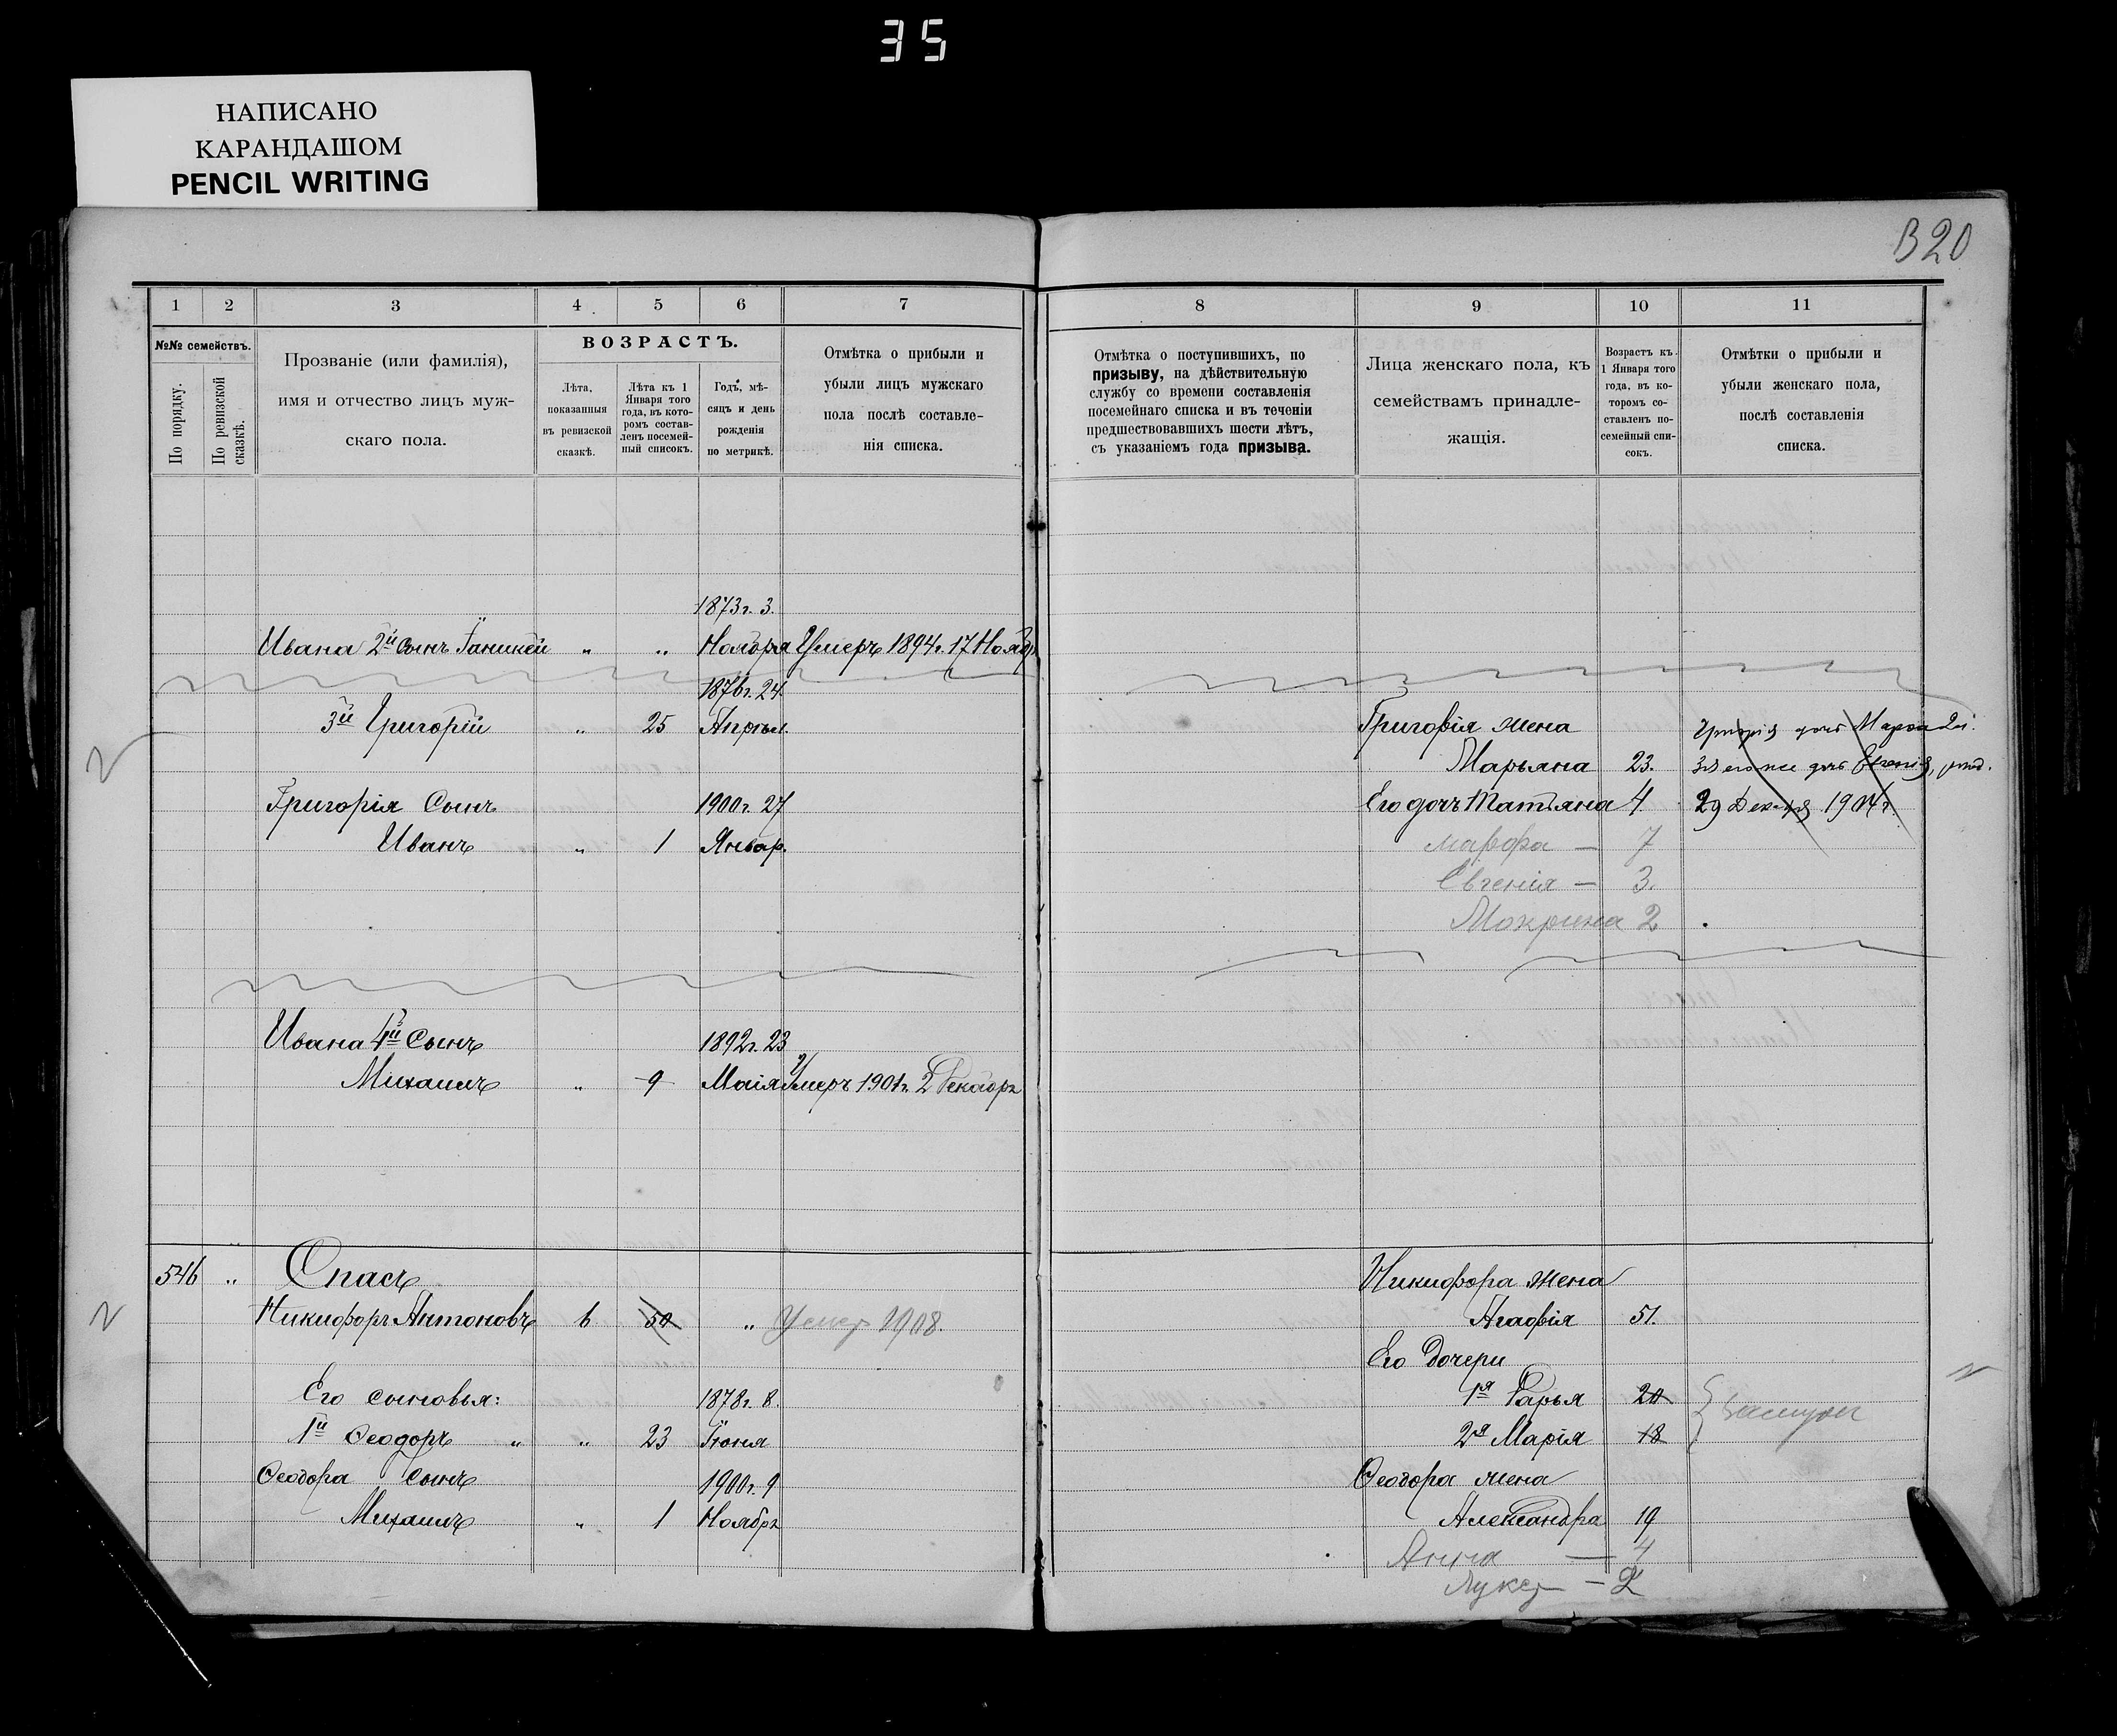 35
НАПИСАНО
КАРАНДАШОМ
PENCIL WRITING
В20
1 2 3 4 5 6 7 8 9 10 11
№№ семействъ.
По порядку.
По ревизской сказкѣ.
Прозваніе (или фамилія),
имя и отчество лицъ муж-
скаго пола.
ВОЗРАСТЪ.
Лѣта,
показанныя
въ ревизской
сказкѣ.
Лѣта къ 1
Января того
года, въ кото-
ромъ состав-
ленъ посемей-
ный списокъ.
Годъ, мѣ-
сяцъ и день
рожденія
по метрикѣ.
Отмѣтка о прибыли и
убыли лицъ мужскаго
пола послѣ составле-
нія списка.
Отмѣтка о поступившихъ, по
призыву, на дѣйствительную
службу со времени составленія
посемейнаго списка и въ теченіи
предшествовавшихъ шести лѣтъ,
съ указаніемъ года призыва.
Лица женскаго пола, къ
семействамъ принадле-
жащія.
Возрастъ къ
1 Января того
года, въ ко-
торомъ со-
ставленъ по-
семейный спи-
сокъ.
Отмѣтки о прибыли и
убыли женскаго пола,
послѣ составленія
списка.
1873г. 3.
Ивана 2й сынъ Іаникей „ „ Ноября Умеръ 1894г. 17 Нояб.
1876г. 24.
3й Григорій „ 25 Апрѣл. Григорія жена Григорія дочь Марѳа
Марьяна 23. его же дочь Евгенія, род.
Григорія Сынъ 1900г. 27 Его дочь Татьяна 4. 29 Декабря 1904г.
Иванъ „ 1 Январ. Марфа — 7
Евгенія — 3.
Мокрина 2
Ивана 4й Сынъ 1892г. 23
Михаилъ „ 9 Маія Умеръ 1901г. 2 Декабръ
546 „ Спасъ Никифора жена
Никифоръ Антоновъ 6 50 „ Умер 1908. Агафія 51.
Его Дочери
Его сыновья: 1878г. 8. 1я Дарья 20
1й Ѳеодоръ „ „ 23 Іюня 2я Марія 18
Ѳеодора сынъ 1900г. 9 Ѳеодора жена
Михаилъ „ 1 Ноябръ Александра 19
Анна — 4
— 2